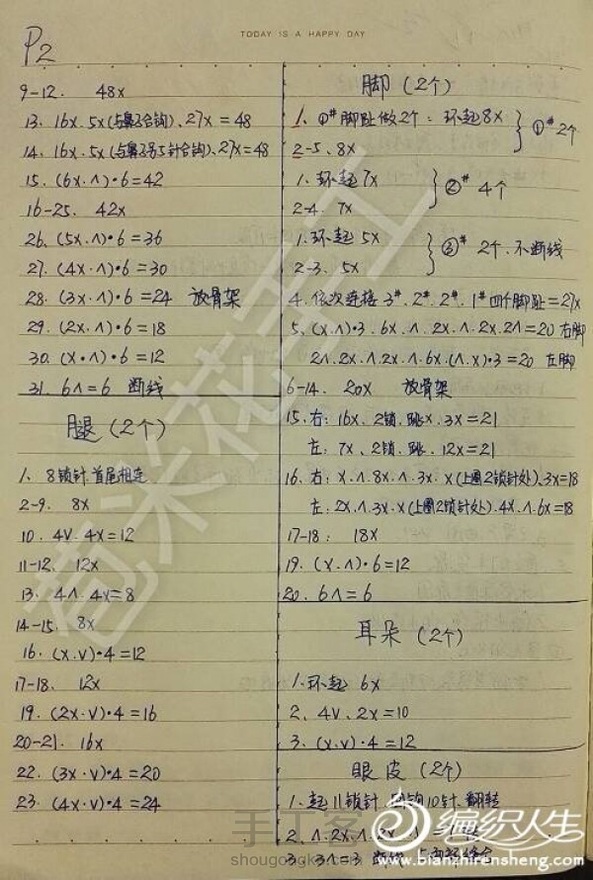 TODAY IS A HAPPY DAY
P2
9-12. 48x
13. 16x.5x(与鼻子合钩)、27x=48
14. 16x.5x(与鼻子另5针合钩)、27x=48
15. (6x.∧)•6=42
16-25. 42x
26. (5x.∧)•6=36
27. (4x.∧)•6=30
28. (3x.∧)•6=24 放骨架
29. (2x.∧)•6=18
30. (x•∧)•6=12
31. 6∧=6 断线
腿(2个)
1、8锁针 首尾相连
2-9. 8x
10. 4V.4x=12
11-12. 12x
13. 4∧.4x=8
14-15. 8x
16. (x.v)•4=12
17-18. 12x
19. (2x.v)•4=16
20-21. 16x
22. (3x.v)•4=20
23. (4x.v)•4=24
脚(2个)
1. ①#脚趾做2个: 环起8x
2-5、8x
①# 2个
1. 环起7x
2-4. 7x
②# 4个
1.环起 5x
2-3. 5x
③# 2个.不断线
4. 依次连接 3#.2#.2#.1#四个脚趾=27x
5、(x.∧)•3.6x.∧.2x.∧.2x.2∧=20 右脚
2∧.2x.∧.2x.∧.6x.(∧.x)•3=20 左脚
6-14. 20x 放骨架
15.右: 16x、2锁.跳x.3x=21
左: 7x、2锁.跳.12x=21
16.右: x.∧.8x.∧.3x.x(上圈2锁针处).3x=18
左: 2x.∧.3x.x(上圈2锁针处).4x.∧.6x=18
17-18: 18x
19. (x.∧)•6=12
20. 6∧=6
耳朵(2个)
1.环起 6x
2、4V、2x=10
3. (x.v)•4=12
眼皮(2个)
1.起11锁针 钩10针 翻转
2、∧.2x.∧.2x.∧
3. 3∧=3 断线
苞米花手工
手工客
shougongke.com
编织人生
www.bianzhirensheng.com